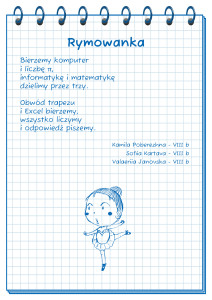 Rymowanka
Bierzemy komputer
i liczbę π,
informatykę i matematykę
dzielimy przez trzy.
Obwód trapezu
i Excel bierzemy,
wszystko liczymy
i odpowiedź piszemy.
Kamila Poberezhna - VIII b
Sofiia Kartava - VIII b
Valeriia Janovska - VIII b